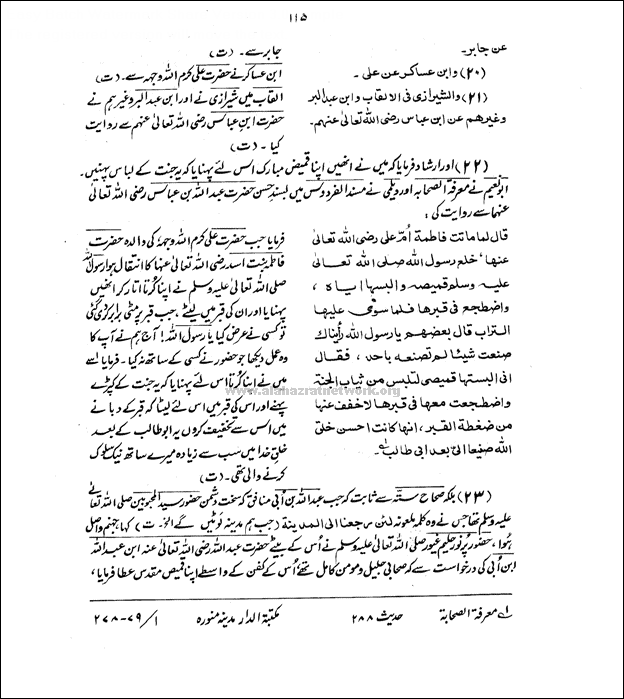 ١١٥
عن جابر۔
(٢٠) وابن عساکر عن علی ۔
(٢١) والشیرازی فی الالقاب وابن عبدالبر
وغیرھم عن ابن عباس رضی اللہ تعالٰی عنہم۔
جابر سے ۔ (ت)
ابن عساکر نے حضرت علی کرم اللہ وجہہ سے۔ (ت)
القاب میں شیرازی نے اور ابن عبدالبر وغیرہم نے
حضرت ابن عباس رضی اللہ تعالٰی عنہم سے روایت
کیا ۔ (ت)
(٢٢) اور ارشاد فرمایا کہ میں نے انھیں اپنا قمیض مبارک اس لئے پہنایا کہ یہ جنت کے لباس پہنیں۔
ابونعیم نے معرفۃ الصحابہ اور دیلمی نے مسند الفردوس میں بسندِ حسن حضرت عبداللہ بن عباس رضی اللہ تعالٰی
عنہما سے روایت کی :
قال لما ماتت فاطمة اُمّ علی رضی اللہ تعالٰی
عنہا، خلع رسول اللہ صلی اللہ تعالٰی
علیہ وسلم قمیصہ والبسہا ایاہ ،
واضطجع فی قبرھا فلما سوّی علیہا
التراب قال بعضہم یارسول اللہ رأیناک
صنعت شیئا لم تصنعہ باحد ، فقال
انی البستہا قمیصی لتلبس من ثیاب الجنة
واضطجعت معہا فی قبرھا لاخفف عنہا
من ضغطة القبر، انہا کانت احسن خلق
اللہ صنیعا الیّ بعد ابی طالب ؎١
فرمایا جب حضرت علی کرم اللہ وجہہ کی والدہ حضرت
فاطمہ بنت اسد رضی اللہ تعالٰی عنہا کا انتقال ہوا رسول اللہ
صلی اللہ تعالٰی علیہ وسلم نے اپنا کُرتا اتار کر انھیں
پہنایا اور ان کی قبر میں لیٹے، جب قبر پر مٹی برابر کردی گئی
تو کسی نے عرض کیا یارسول اللہ! آج ہم نے آپ کا
وہ عمل دیکھا جو حضور نے کسی کے ساتھ نہ کیا ۔ فرمایا اسے
میں نے اپنا کُرتا اس لئے پہنایا کہ یہ جنت کے کپڑے
پہنے اور اس کی قبر میں اس لئے لیٹا کہ قبر کے دبانے
میں اس سے تخفیف کروں یہ ابوطالب کے بعد
خلقِ خدا میں سب سے زیادہ میرے ساتھ نیک سلوک
کرنے والی تھی۔ (ت)
www.alahazratnetwork.org
(٢٣) بلکہ صحاح ستّہ سے ثابت کہ جب عبداللہ بن اُبی منافق کہ سخت دشمن حضور سید المحبوبین صلی اللہ تعالٰی
علیہ وسلم تھا جس نے وہ کلمہ ملعونہ لئن رجعنا الی المدینة (جب ہم مدینہ لوٹیں گے الخ۔ ت) کہا جہنم واصل
ہُوا ، حضور پُر نور حلیم غیور صلی اللہ تعالٰی علیہ وسلم نے اُس کے بیٹے حضرت عبداللہ رضی اللہ تعالٰی عنہ ابن عبداللہ
ابن اُبی کی درخواست سے کہ صحابی جلیل و مومن کامل تھے اُس کے کفن کے واسطے اپنا قمیص مقدس عطا فرمایا ،
؎١ معرفۃ الصحابۃ حدیث ٢٨٨ مکتبۃ الدار مدینہ منورہ ١/ ٧٩-٢٧٨